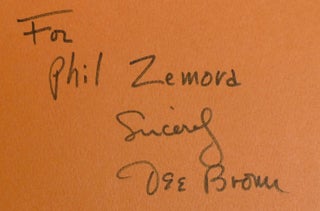 For
Phil Zemova
Sincerely
Dee Brown